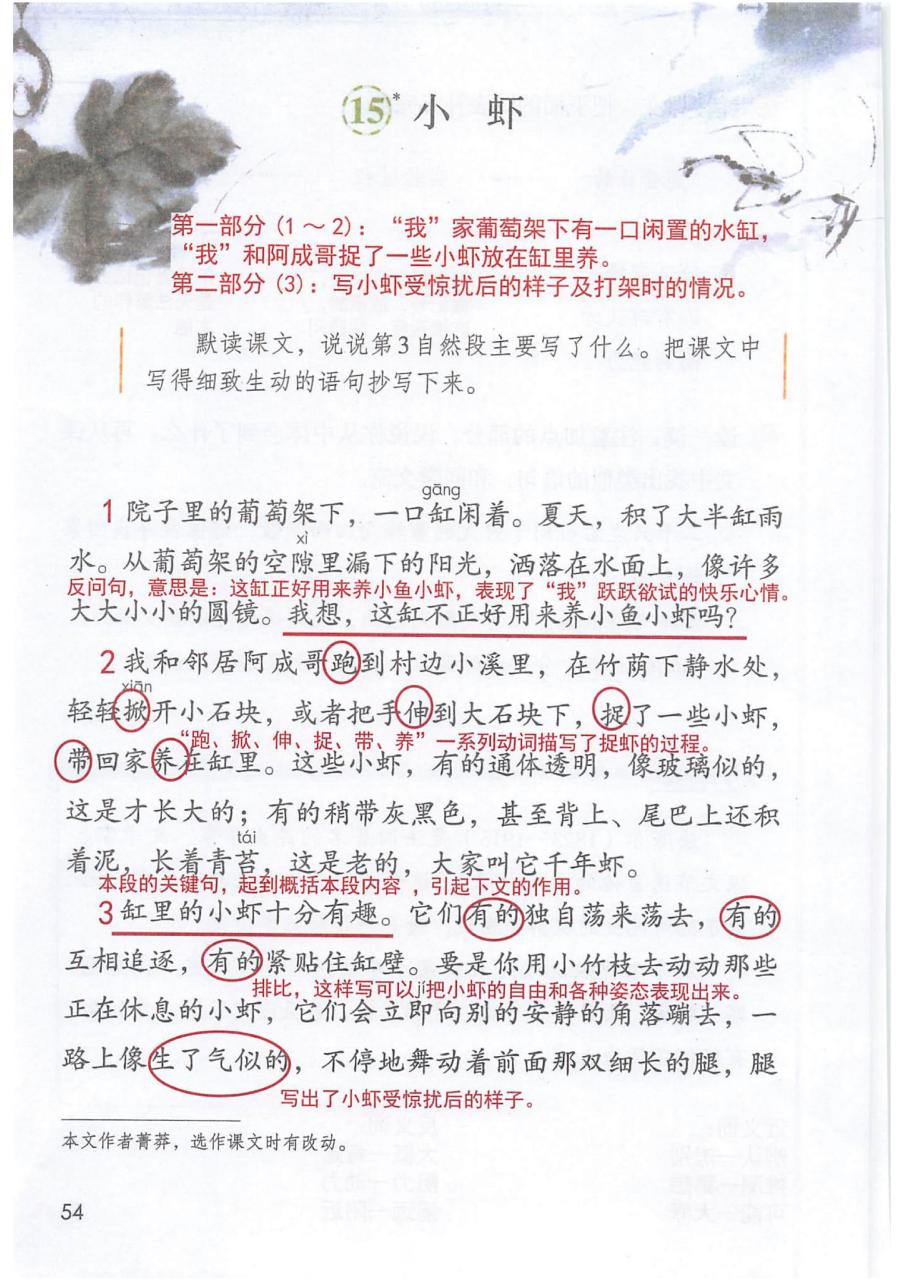 15* 小虾
第一部分（1～2）：“我”家葡萄架下有一口闲置的水缸，
“我”和阿成哥捉了一些小虾放在缸里养。
第二部分（3）：写小虾受惊扰后的样子及打架时的情况。
默读课文，说说第3自然段主要写了什么。把课文中
写得细致生动的语句抄写下来。
gāng
1 院子里的葡萄架下，一口缸闲着。夏天，积了大半缸雨
xì
水。从葡萄架的空隙里漏下的阳光，洒落在水面上，像许多
反问句，意思是：这缸正好用来养小鱼小虾，表现了“我”跃跃欲试的快乐心情。
大大小小的圆镜。我想，这缸不正好用来养小鱼小虾吗？
2 我和邻居阿成哥跑到村边小溪里，在竹荫下静水处，
xiān
轻轻掀开小石块，或者把手伸到大石块下，捉了一些小虾，
“跑、掀、伸、捉、带、养”一系列动词描写了捉虾的过程。
带回家养在缸里。这些小虾，有的通体透明，像玻璃似的，
这是才长大的；有的稍带灰黑色，甚至背上、尾巴上还积
tái
着泥，长着青苔，这是老的，大家叫它千年虾。
本段的关键句，起到概括本段内容，引起下文的作用。
3 缸里的小虾十分有趣。它们有的独自荡来荡去，有的
互相追逐，有的紧贴住缸壁。要是你用小竹枝去动动那些
排比，这样写可以把小虾的自由和各种姿态表现出来。
jí
正在休息的小虾，它们会立即向别的安静的角落蹦去，一
路上像生了气似的，不停地舞动着前面那双细长的腿，腿
写出了小虾受惊扰后的样子。
本文作者菁莽，选作课文时有改动。
54